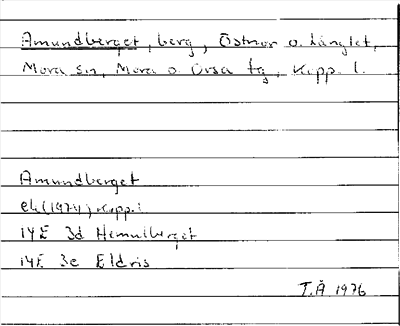 Amundberget, berg, Östnor o. Långlet,
Mora sn, Mora o Orsa tg, Kopp. l.
Amundberget
ek (1974) Kopp. l
14E 3d Hemulberget
14E 3e Eldris
T.Å 1976